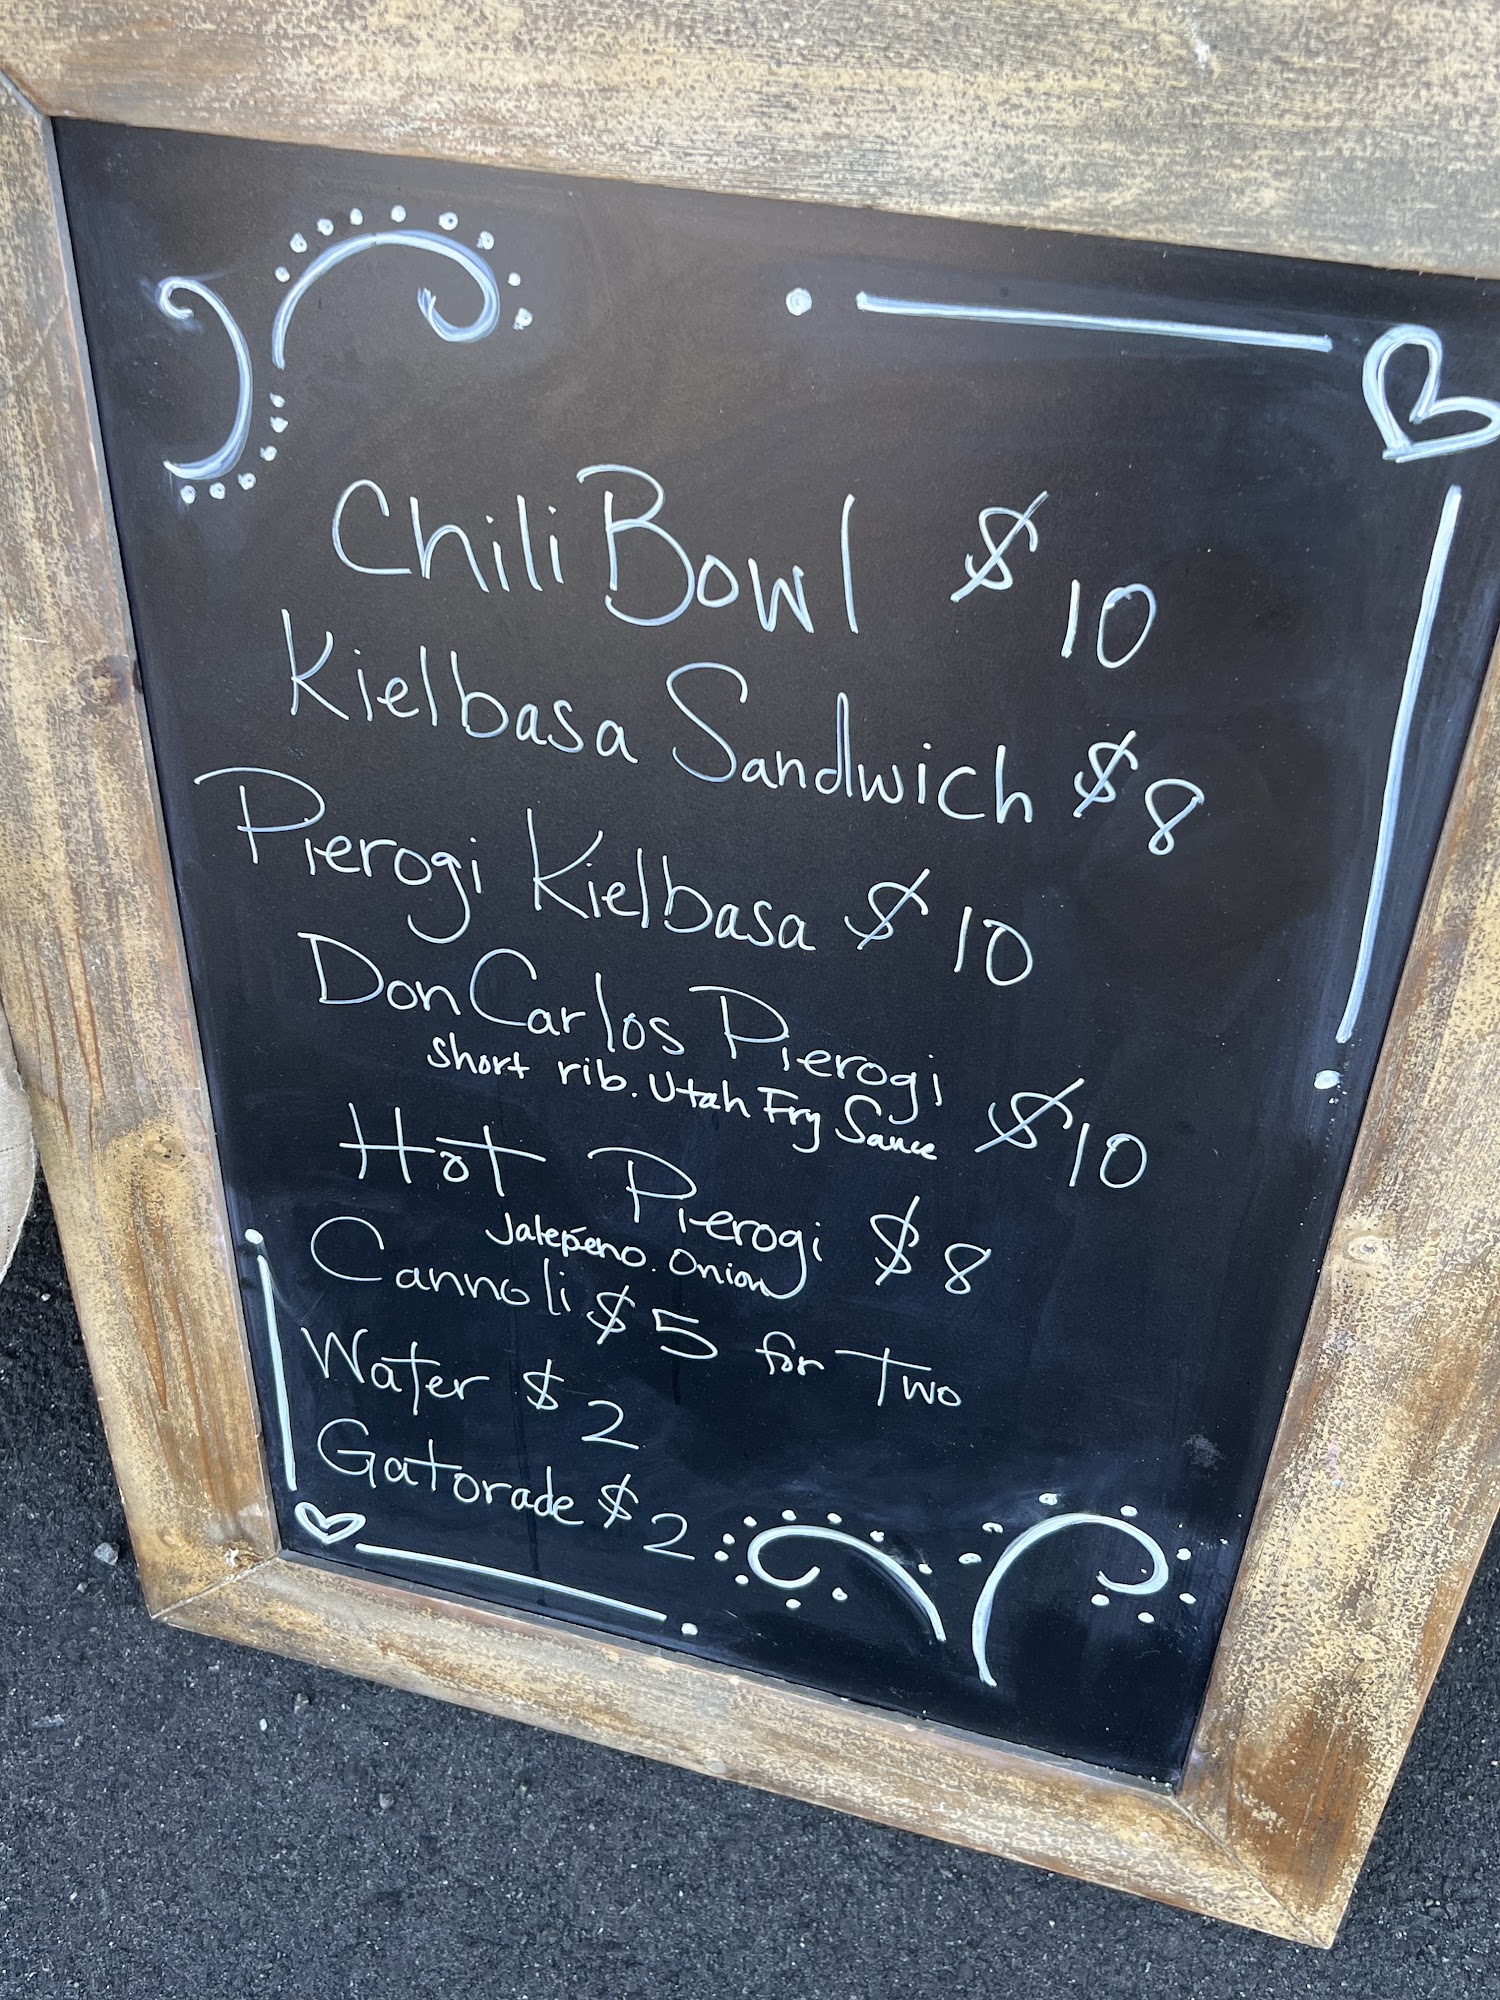 Chili Bowl $10
Kielbasa Sandwich $8
Pierogi Kielbasa $10
Don Carlos Pierogi $10
Short rib. Utah Fry Sauce
Hot Pierogi $8
Jalepeno. Onion
Cannoli $5 for Two
Water $2
Gatorade $2